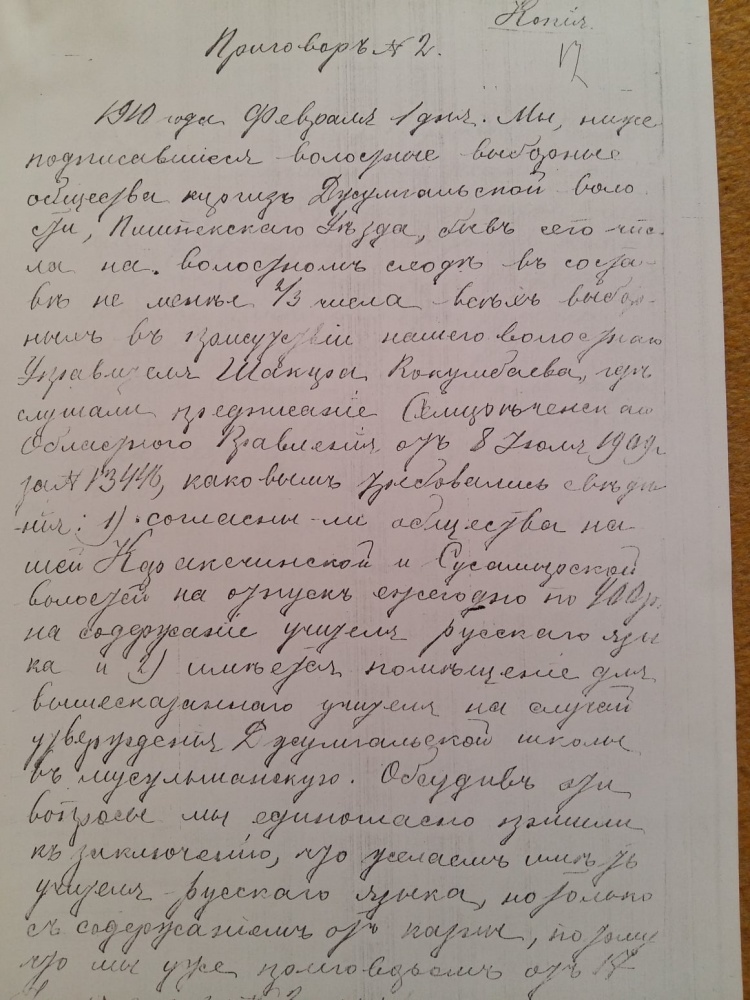 Копія
Приговоръ № 2.
1910 года Февраля 1 дня. Мы, ниже
подписавшіеся волостные выборные
общества киргизъ Джумгальской воло
сти, Пишпекскаго Уѣзда, бывъ сего чис-
ла на волостномъ сходѣ въ соста-
вѣ не менѣе 2/3 числа всѣхъ выбор-
ныхъ въ присутствіи нашего волостного
Управителя Шакира Кокумбаева, гдѣ
слушали предписаніе Семирѣченскаго
Областного Правленія отъ 8 Іюля 1909 г.
за № 13446, каковымъ требовались свѣдѣ
-нія: 1) согласны-ли общества на-
шей Кароакечинской и Сусамырской
волостей на отпускъ ежегодно по 400 р.
на содержаніе учителя русскаго язы
ка и 2) имѣется помѣщеніе для
вышесказаннаго учителя на случай
утвержденія Джумгальской школы
въ мусульманскую. Обсудивъ эти
вопросы мы единогласно пришли
къ заключенію, что желаемъ имѣть
учителя русскаго языка, но только
съ содержаніемъ отъ казны, потому
что мы уже приговоромъ отъ 17